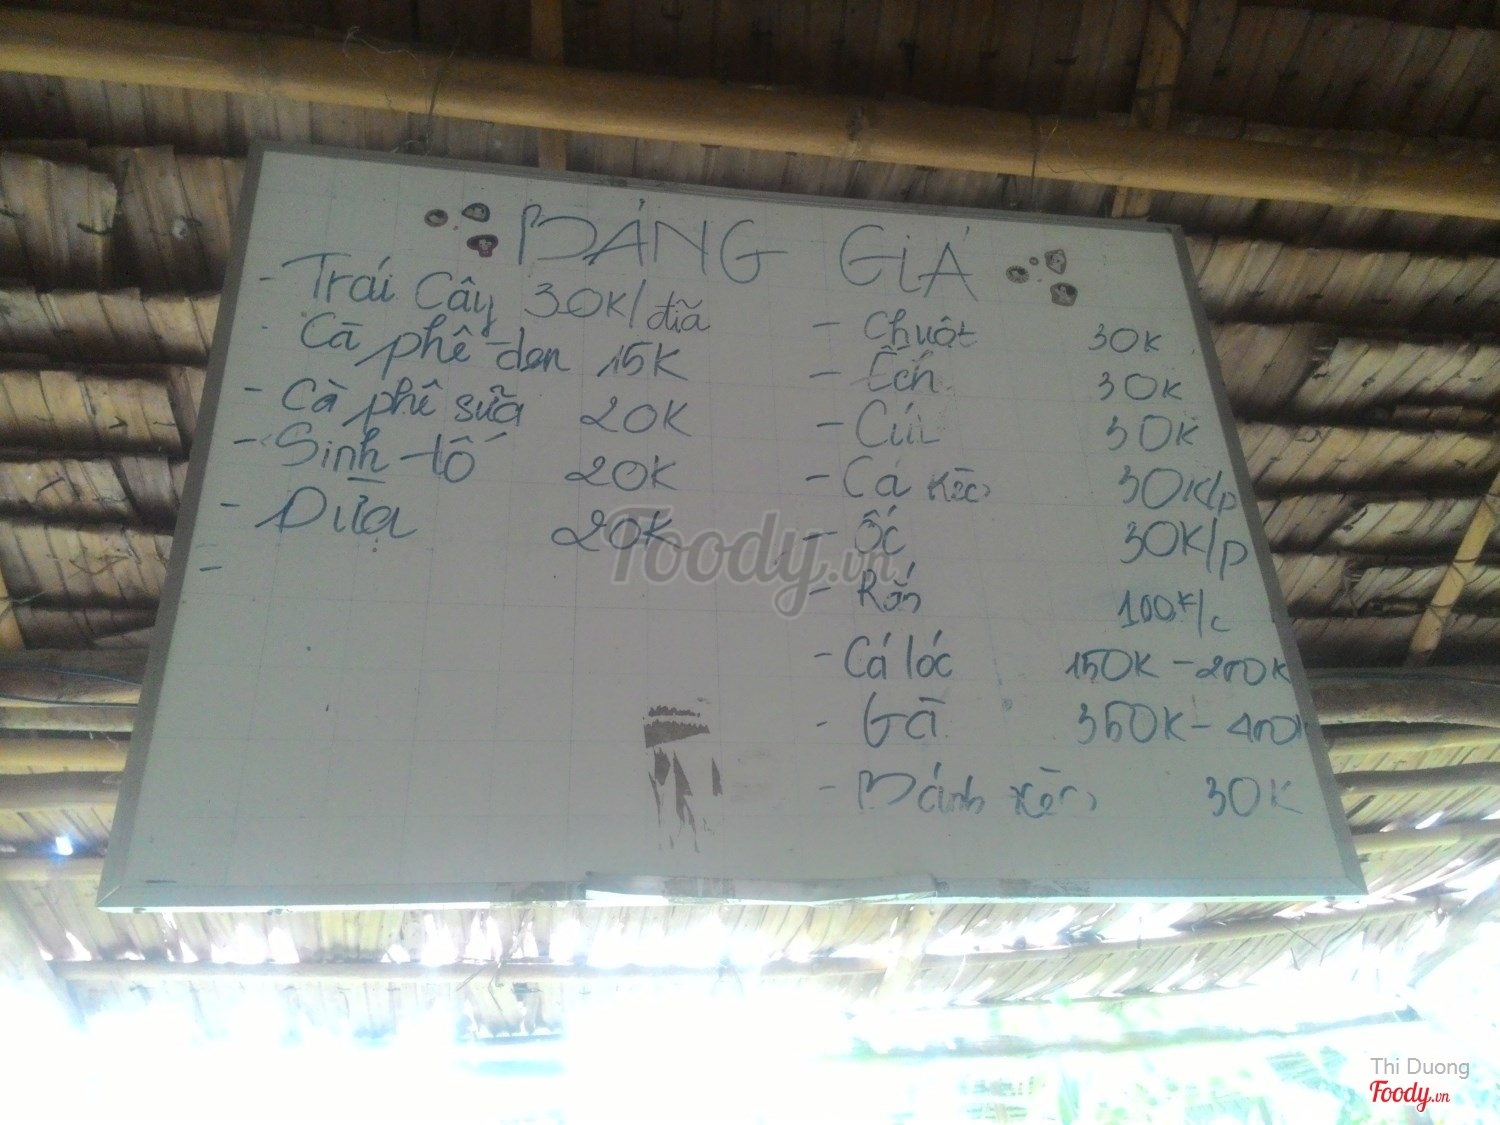 BẢNG GIÁ
- Trái Cây 30K/đĩa
Cà phê đen 15K
- Cà phê sữa 20K
- Sinh tố 20K
- Dừa 20K
-
- Chuột 30K
- Ếch 30K
- Cút 30K
- Cá kèo 30K/p
- Ốc 30K/p
- Rắn 100K/c
- Cá lóc 150K - 200K
- Gà 350K - 400K
- Bánh xèo 30K
Foody.vn
Thi Duong
Foody.vn